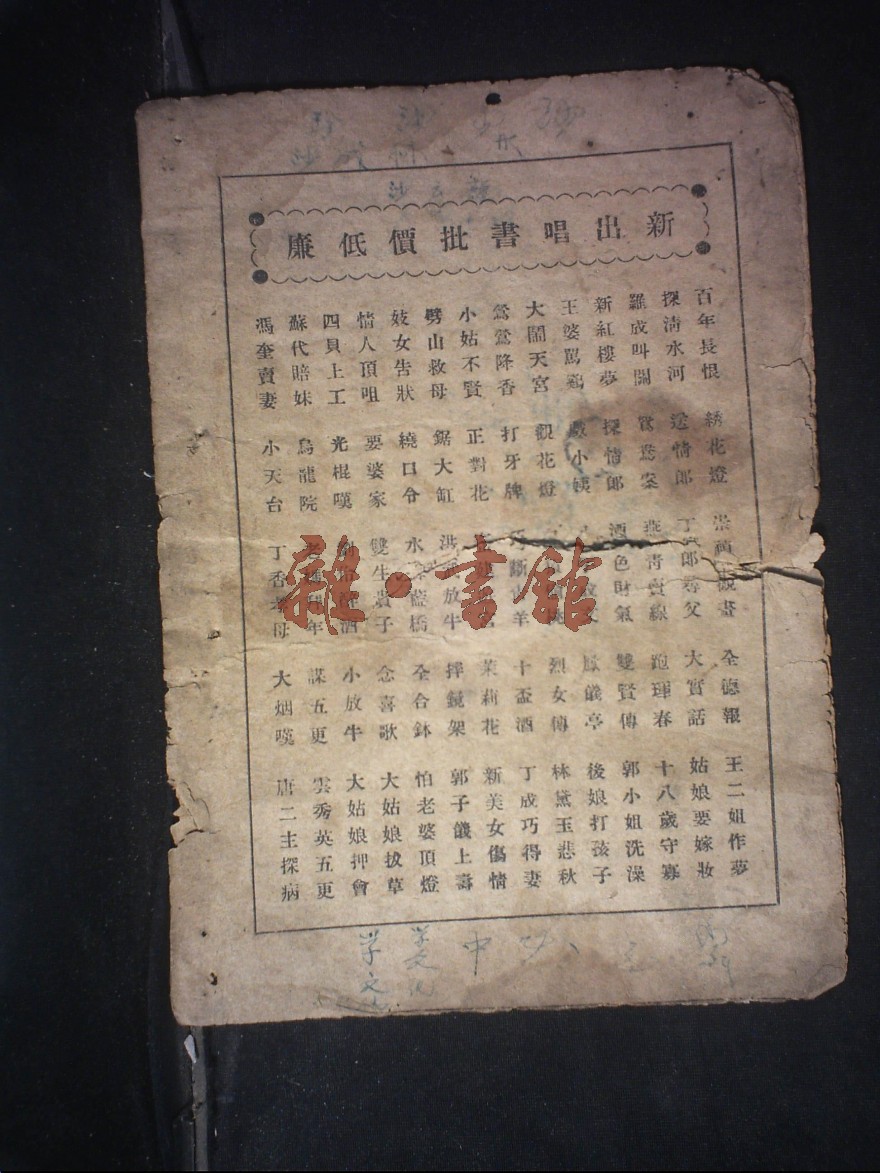 新出唱書批價低廉
百年長恨 綉花燈 崇禎觀畫 全德報 王二姐作夢
探清水河 送情郎 丁郎尋父 大實話 姑娘要嫁妝
羅成叫關 鴛鴦案 燕青賣線 跑琿春 十八歲守寡
新紅樓夢 探情郎 酒色財氣 雙賢傳 郭小姐洗澡
王婆罵鷄 戲小姨 鳳儀亭 後娘打孩子
大鬧天宮 觀花燈 烈女傳 林黛玉悲秋
鶯鶯降香 打牙牌 十盃酒 丁成巧得妻
小姑不賢 正對花 茉莉花 新美女傷情
劈山救母 鋸大缸 放牛 拌鏡架 郭子儀上壽
妓女告狀 繞口令 水 藍橋 全合鉢 怕老婆頂燈
情人頂咀 要婆家 雙生貴子 念喜歌 大姑娘拔草
四貝上工 光棍嘆 酒 小放牛 大姑娘押會
蘇代賠妹 烏龍院 年 謀五更 雲秀英五更
馮奎賣妻 小天台 丁香 母 大烟嘆 唐二主探病
雜·書館
中
学文